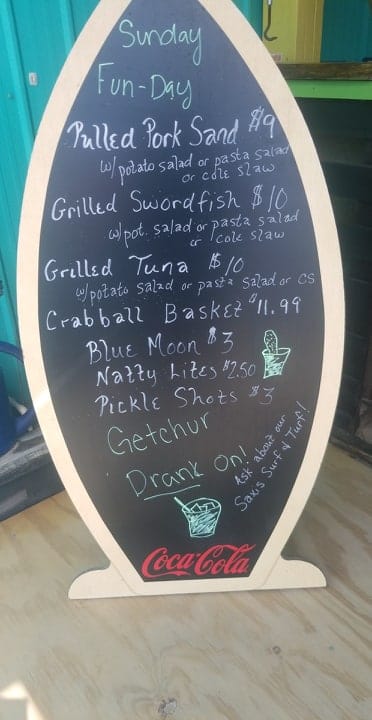 Sunday
Fun-Day
Pulled Pork Sand $9
w/ potato salad or pasta salad
or cole slaw
Grilled Swordfish $10
w/ pot. salad or pasta salad
or cole slaw
Grilled Tuna $10
w/ potato salad or pasta salad or CS
Crabball Basket $11.99
Blue Moon $3
Natty Lites $2.50
Pickle Shots $3
Getchur
Drank On!
Ask about our
Saxis Surf & Turf!
Coca-Cola